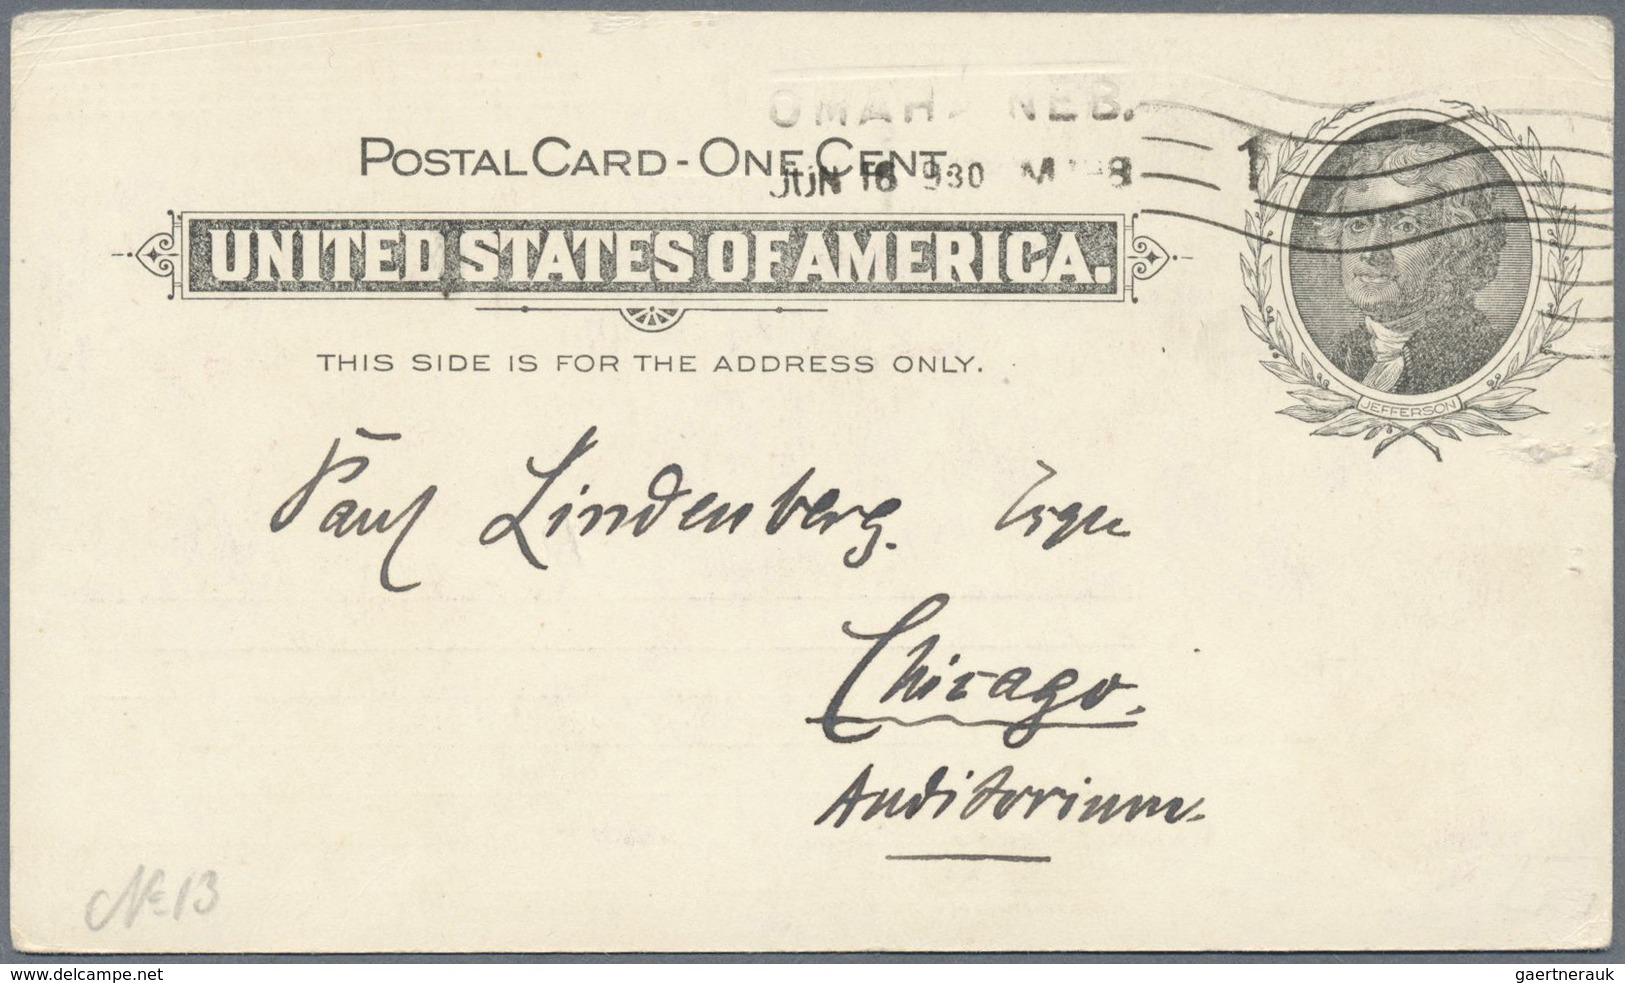 OMAHA NEB.
POSTAL CARD - ONE CENT.
JUN 18 930 M 98
1
UNITED STATES OF AMERICA.
THIS SIDE IS FOR THE ADDRESS ONLY.
JEFFERSON
Paul Lindenberg. Esqu
Chicago.
Auditorium.
No 13
www.delcampe.net
gaertnerauk